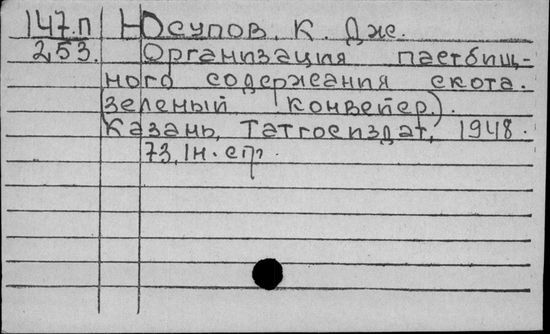 147.п Юсупов, К. Дж.
253. Организация пастбищ-
ного содержания скота.
(зеленый конвейер.).
Казань, Татгосиздат, 1948.
73, 1н. стр.